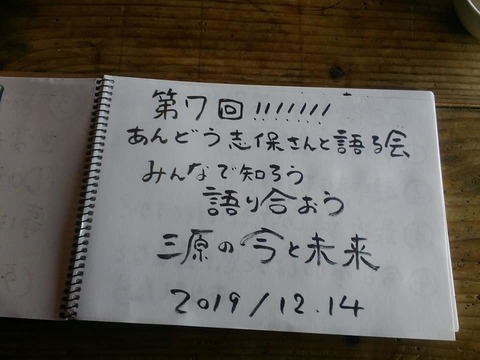 第7回!!!!!!!
あんどう志保さんと語る会
みんなで知ろう
語り合おう
三原の今と未来
2019/12.14